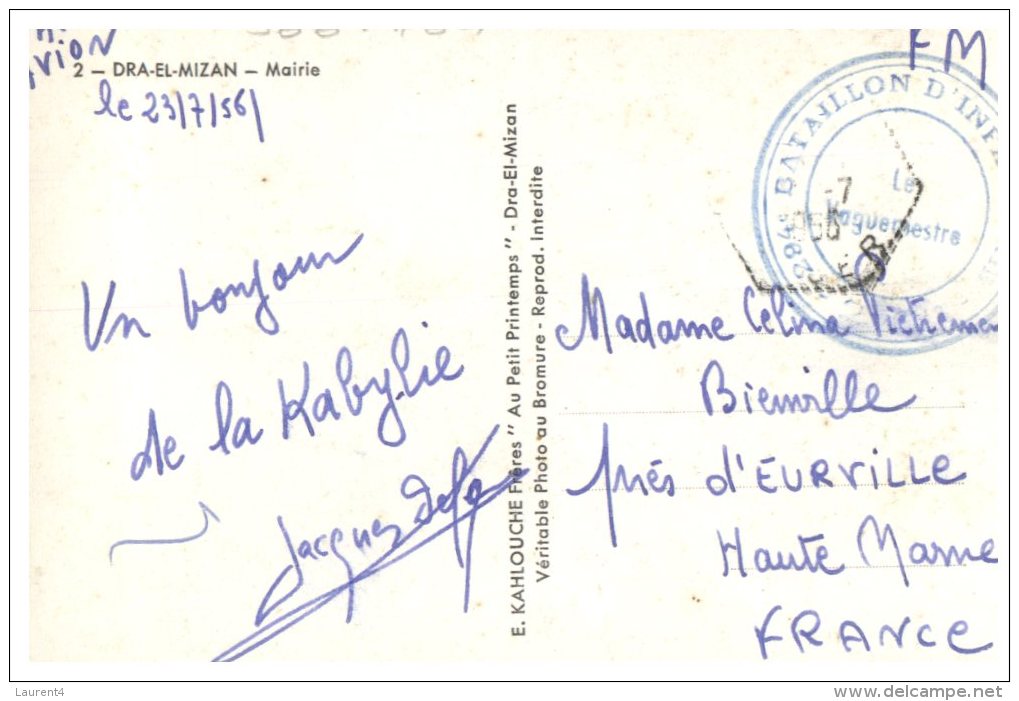 AVION
FM
2 — DRA-EL-MIZAN — Mairie
le 23/7/56/
Un bonjour
de la Kabylie
Jacques
E. KAHLOUCHE Frères " Au Petit Printemps " - Dra-El-Mizan
Véritable Photo au Bromure - Reprod. Interdite
BATAILLON D'INF
Le
Vaguemestre
-7
Madame Célina
Bienville
près d'EURVILLE
Haute Marne
FRANCE
Laurent4
www.delcampe.net